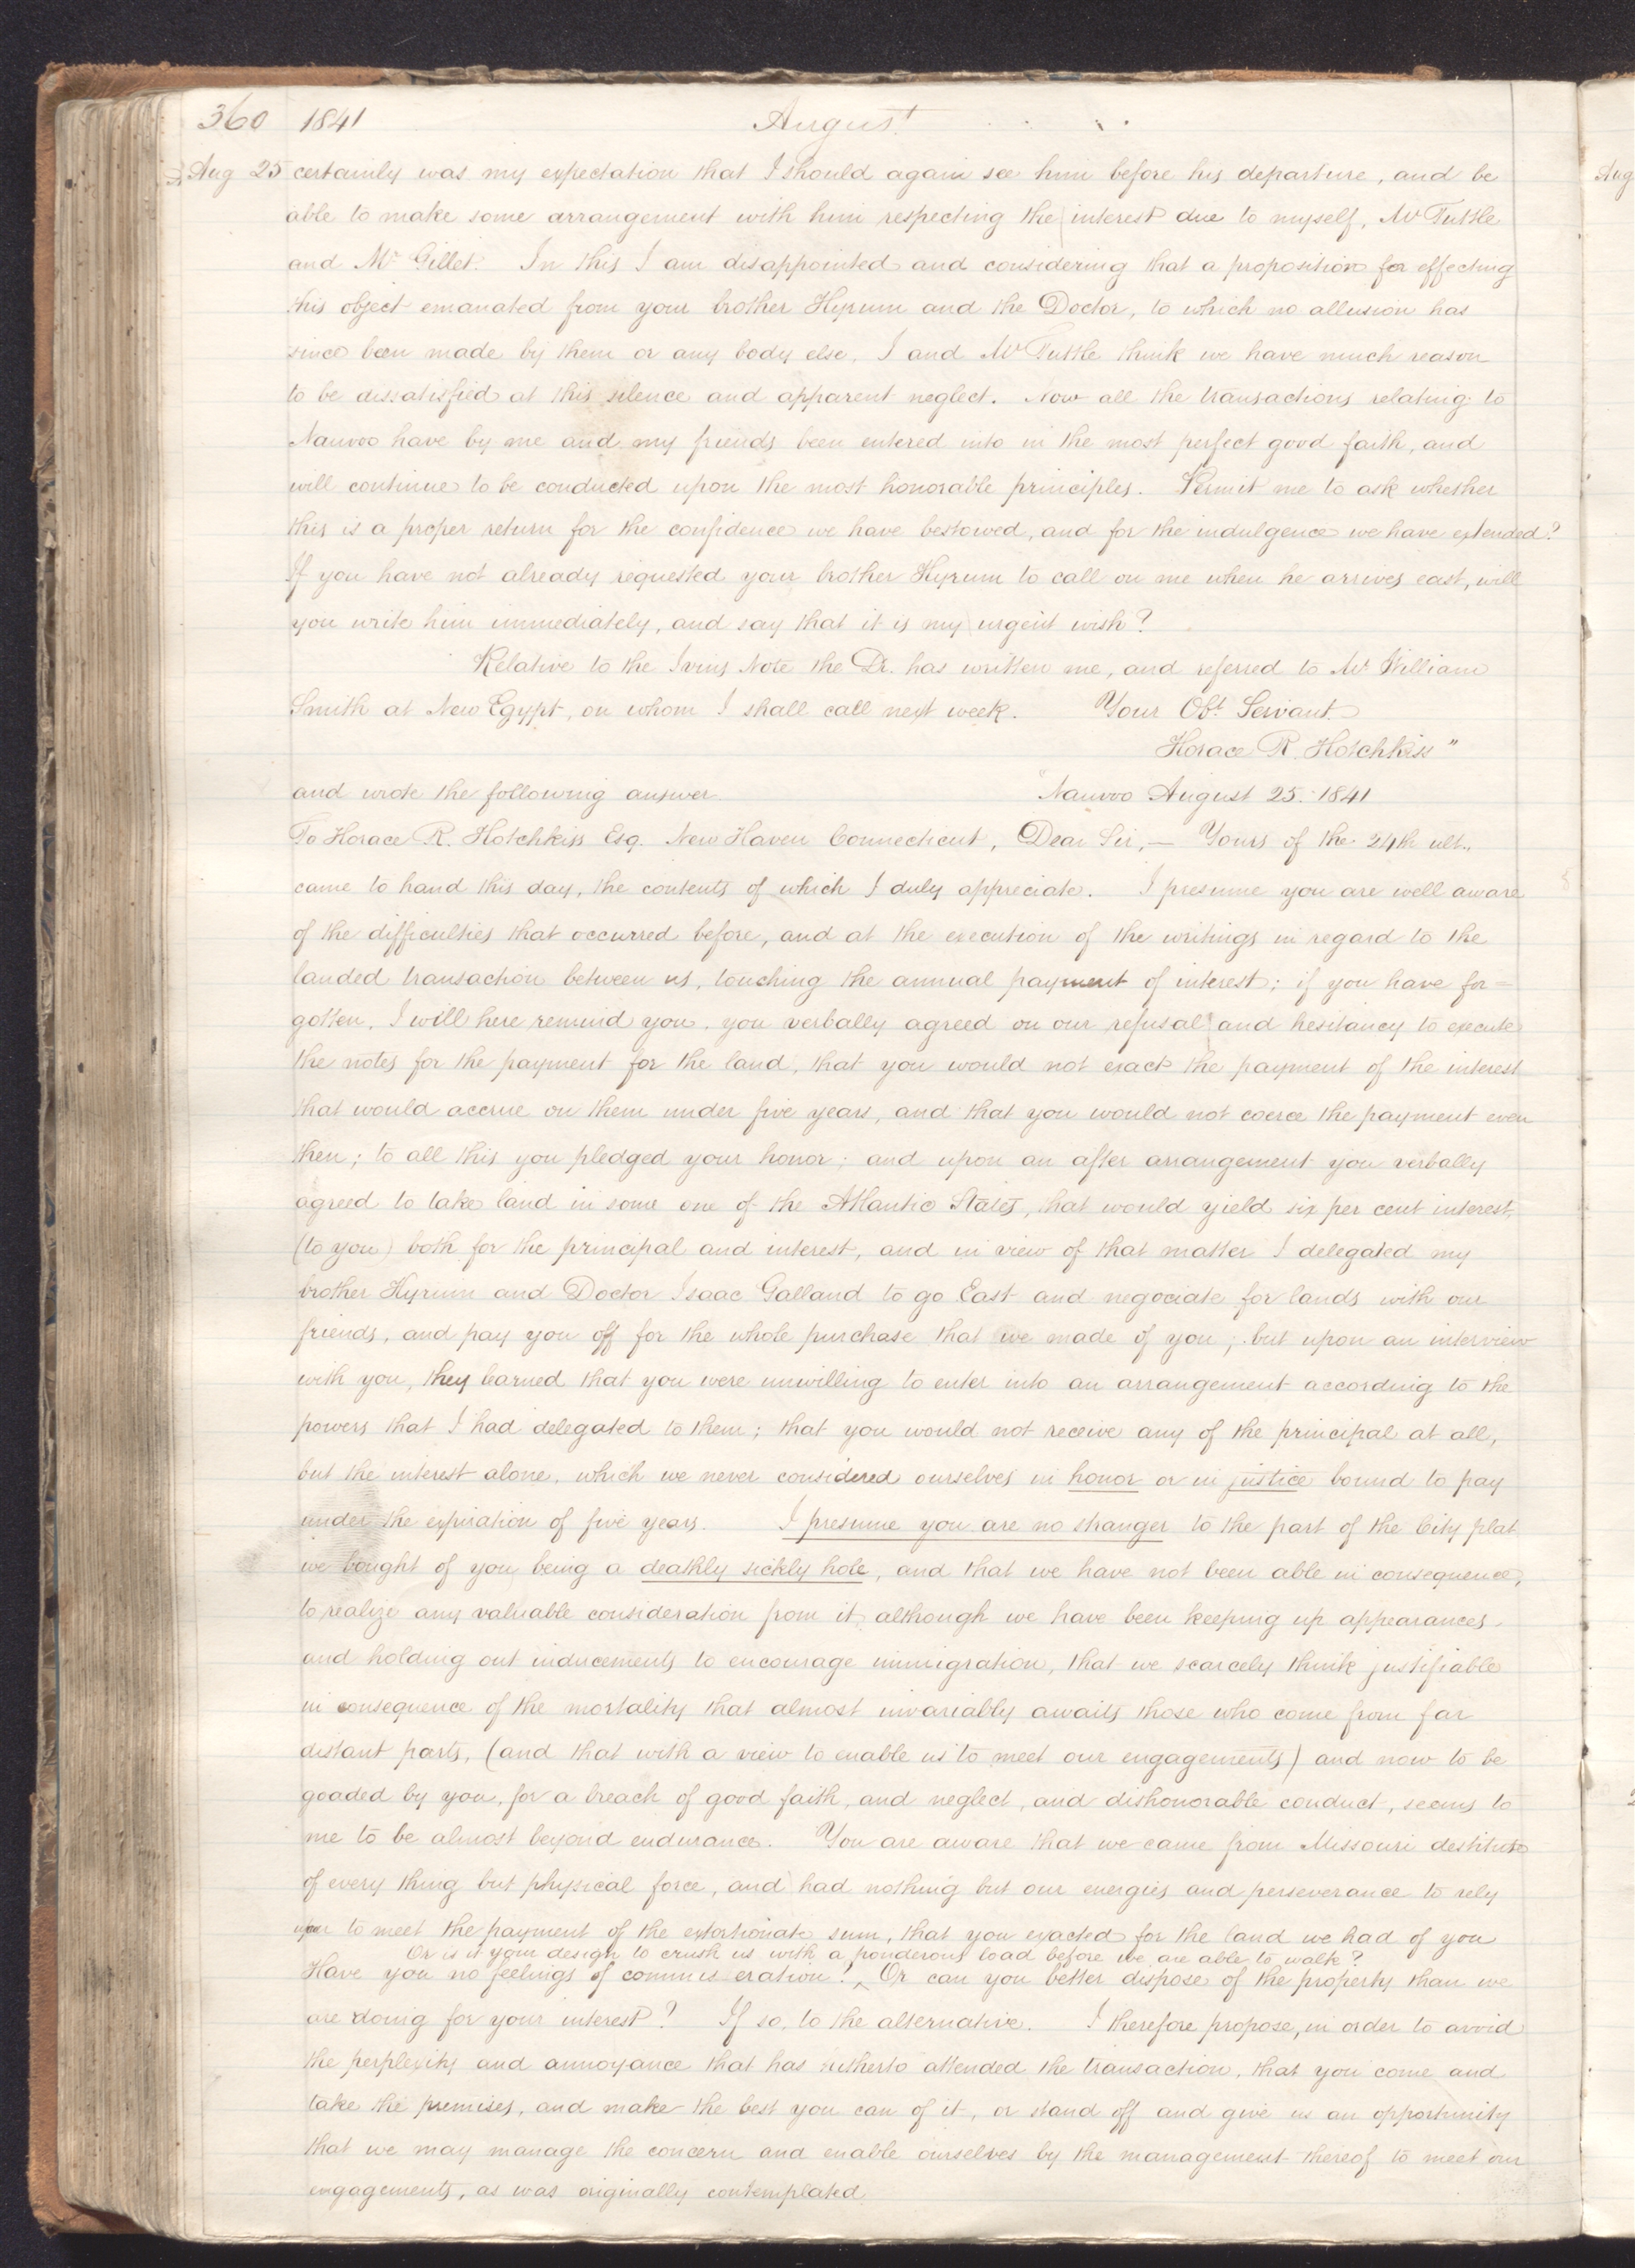 360 1841 August
Aug 25 certainly was my expectation that I should again see him before his departure, and be
able to make some arrangement with him respecting the interest due to myself, Mr Tuttle
and Mr Gillet. In this I am disappointed and considering that a proposition for effecting
this object emanated from your brother Hyrum and the Doctor, to which no allusion has
since been made by them or any body else, I and Mr Tuttle think we have much reason
to be dissatisfied at this silence and apparent neglect. Now all the transactions relating to
Nauvoo have by me and my friends been entered into in the most perfect good faith, and
will continue to be conducted upon the most honorable principles. Permit me to ask whether
this is a proper return for the confidence we have bestowed, and for the indulgence we have extended?
If you have not already requested your brother Hyrum to call on me when he arrives east, will
you write him immediately, and say that it is my urgent wish?
Relative to the Ivins Note the Dr. has written me, and referred to Mr William
Smith at New Egypt, on whom I shall call next week. Your Obt Servant.
Horace R. Hotchkiss"
and wrote the following answer. "Nauvoo August 25. 1841
To Horace R. Hotchkiss Esq. New Haven Connecticut, Dear Sir,— Yours of the 24th ult.,
came to hand this day, the contents of which I duly appreciate. I presume you are well aware
of the difficulties that occurred before, and at the execution of the writings in regard to the
landed transaction between us, touching the annual payment of interest; if you have for=
gotten, I will here remind you, you verbally agreed on our refusal and hesitancy to execute
the notes for the payment for the land, that you would not exact the payment of the interest
that would accrue on them under five years, and that you would not coerce the payment even
then; to all this you pledged your honor; and upon an after arrangement you verbally
agreed to take land in some one of the Atlantic States, that would yield six per cent interest,
(to you) both for the principal and interest, and in view of that matter I delegated my
brother Hyrum and Doctor Isaac Galland to go East and negociate for lands with our
friends, and pay you off for the whole purchase that we made of you; but upon an interview
with you, they learned that you were unwilling to enter into an arrangement according to the
powers that I had delegated to them; that you would not receive any of the principal at all,
but the interest alone, which we never considered ourselves in honor or in justice bound to pay
under the expiration of five years. I presume you are no stranger to the part of the City plat
we bought of you being a deathly sickly hole, and that we have not been able in consequence,
to realize any valuable consideration from it, although we have been keeping up appearances
and holding out inducements to encourage immigration, that we scarcely think justifiable
in consequence of the mortality that almost invariably awaits those who come from far
distant parts, (and that with a view to enable us to meet our engagements) and now to be
goaded by you, for a breach of good faith, and neglect, and dishonorable conduct, seems to
me to be almost beyond endurance. You are aware that we came from Missouri destitute
of every thing but physical force, and had nothing but our energies and perseverance to rely
upon to meet the payment of the extortionate sum, that you exacted for the land we had of you
Or is it your design to crush us with a ponderous load before we are able to walk?
Have you no feelings of commiseration! ^ Or can you better dispose of the property than we
are doing for your interest? If so, to the alternative. I therefore propose, in order to avoid
the perplexity and annoyance that has hitherto attended the transaction, that you come and
take the premises, and make the best you can of it, or stand off and give us an opportunity
that we may manage the concern and enable ourselves by the management thereof to meet our
engagements, as was originally contemplated.
Aug
2